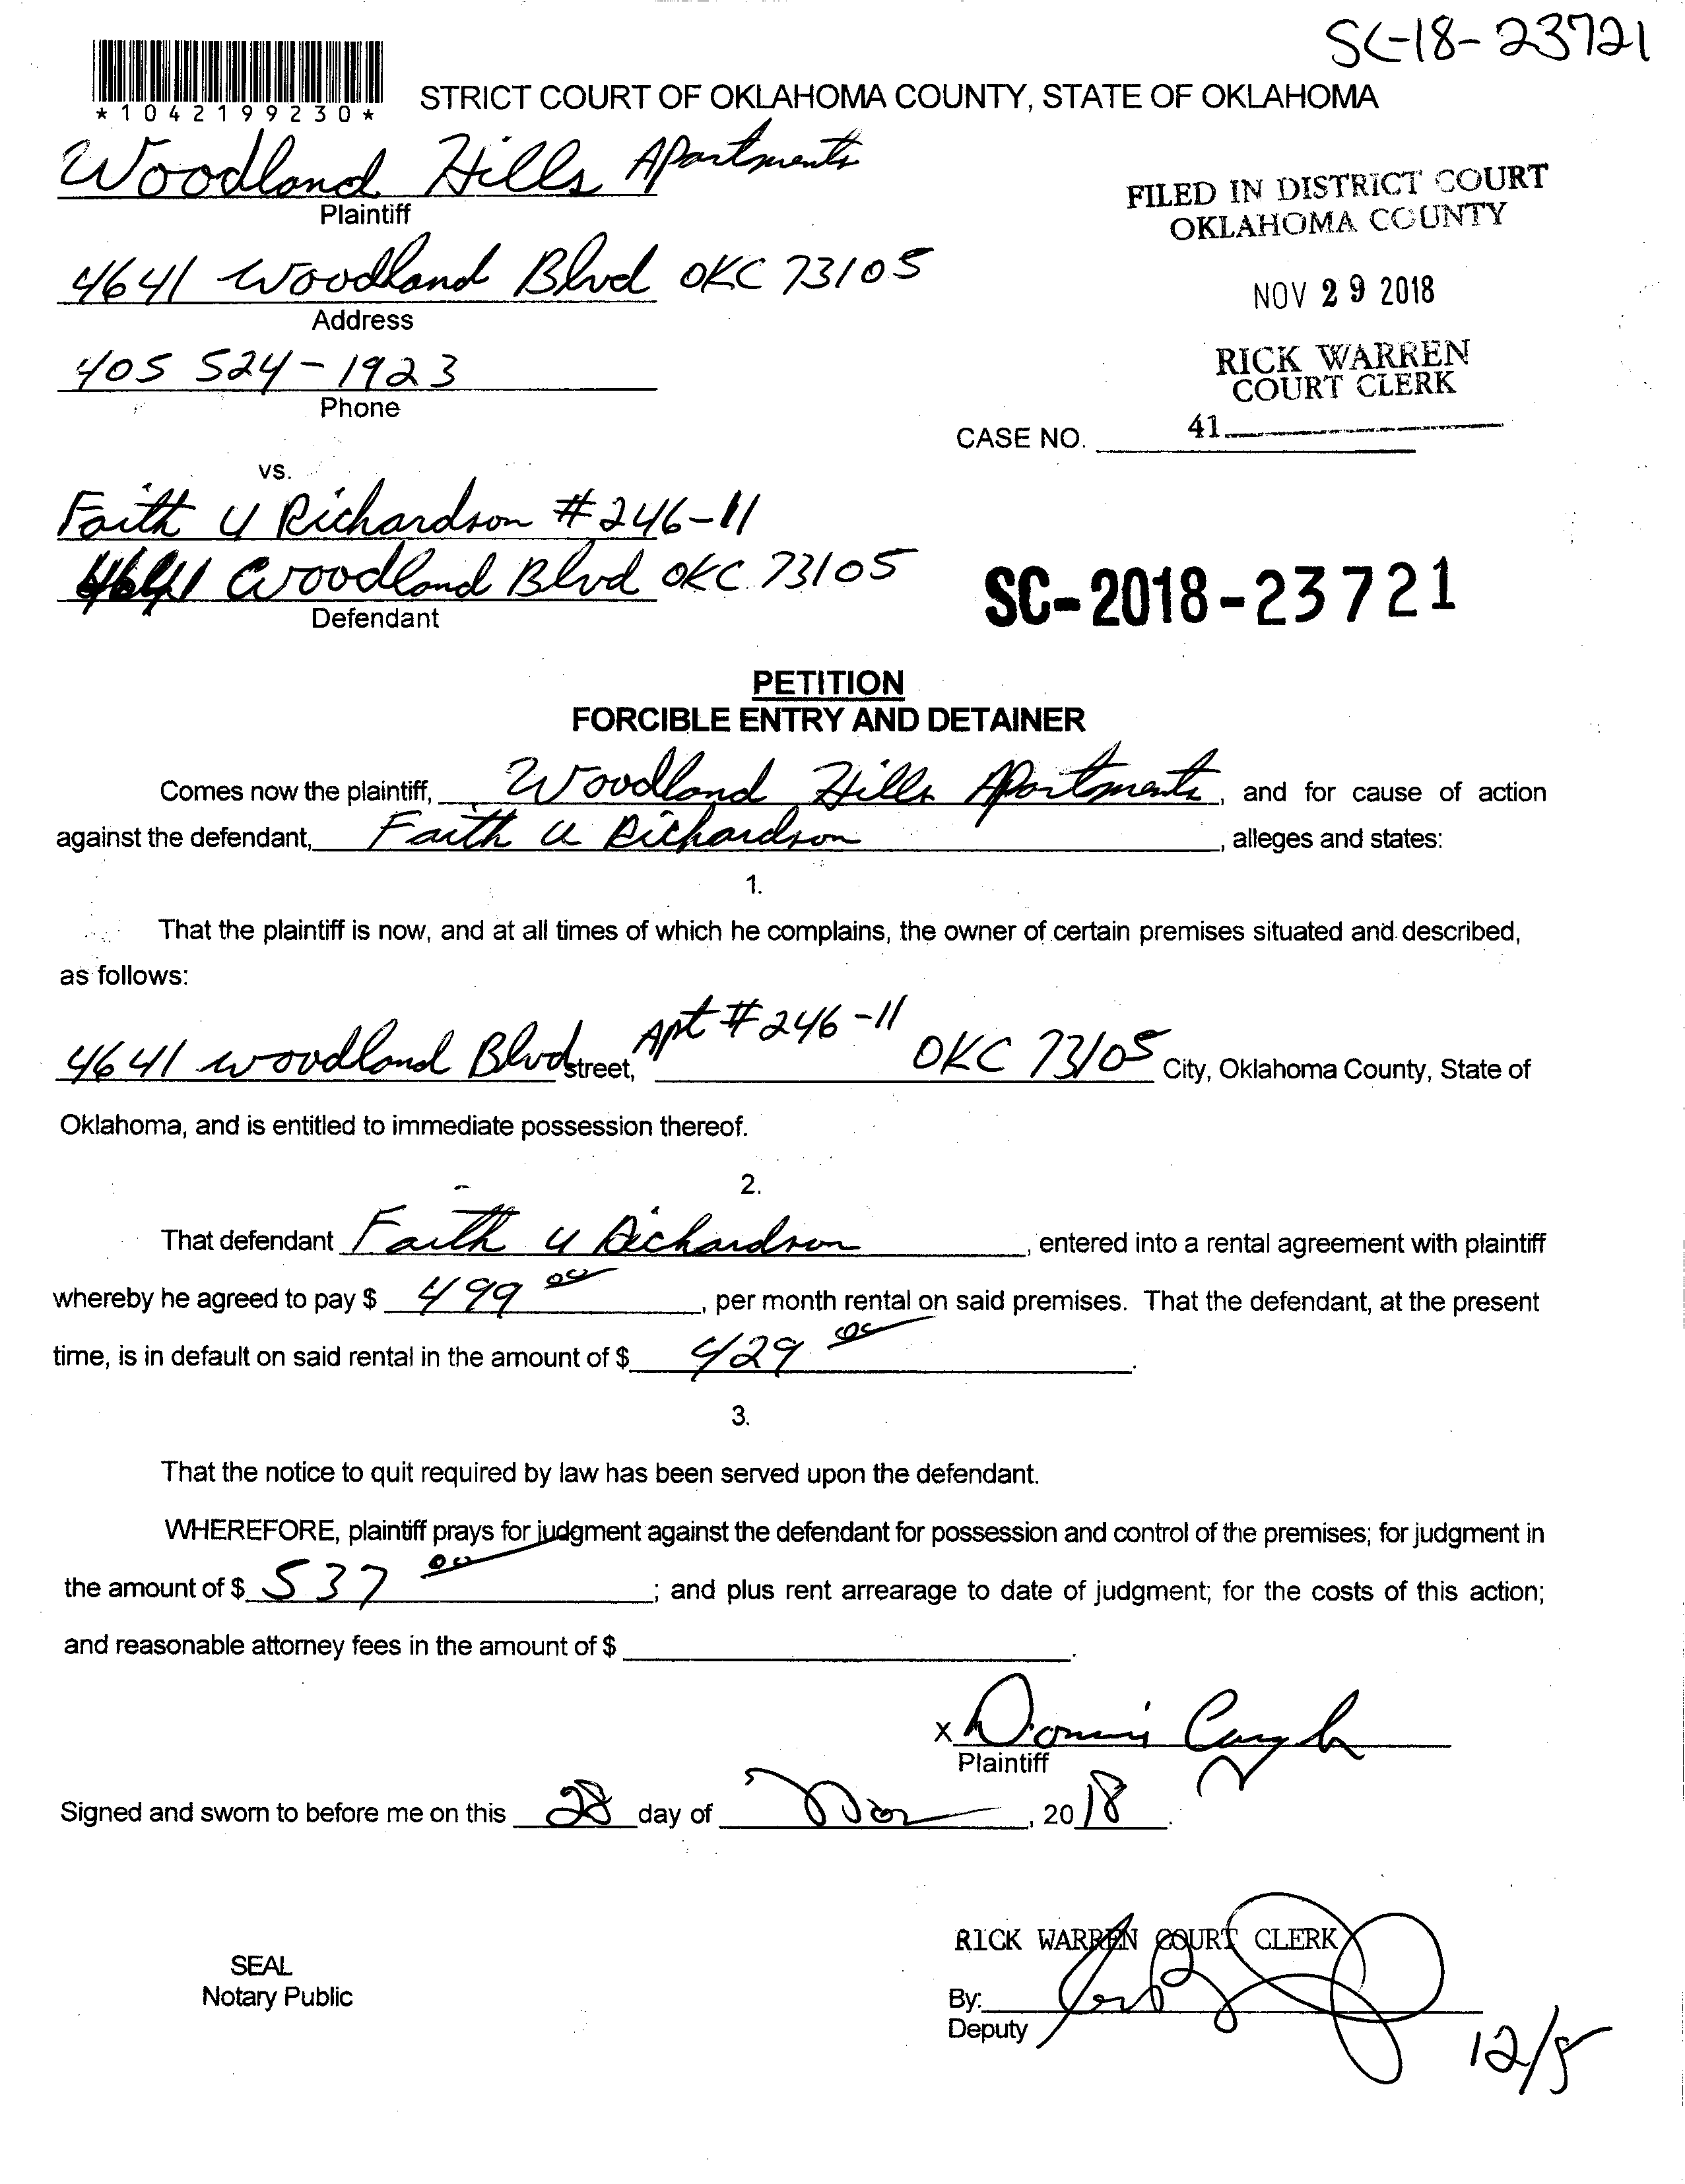 SC-18-23721
*1042199230*
STRICT COURT OF OKLAHOMA COUNTY, STATE OF OKLAHOMA
Woodland Hills Apartments
Plaintiff
FILED IN DISTRICT COURT
OKLAHOMA COUNTY
4641 Woodland Blvd OKC 73105
Address
NOV 29 2018
405 524-1923
Phone
RICK WARREN
COURT CLERK
CASE NO. 41
vs.
Faith U Richardson #246-11
4641 Woodland Blvd OKC 73105
Defendant
SC-2018-23721
PETITION
FORCIBLE ENTRY AND DETAINER
Comes now the plaintiff, Woodland Hills Apartments, and for cause of action
against the defendant, Faith U Richardson, alleges and states:
1.
That the plaintiff is now, and at all times of which he complains, the owner of certain premises situated and described,
as follows:
4641 Woodland Blvd street, Apt #246-11 OKC 73105 City, Oklahoma County, State of
Oklahoma, and is entitled to immediate possession thereof.
2.
That defendant Faith U Richardson, entered into a rental agreement with plaintiff
whereby he agreed to pay $ 499 00, per month rental on said premises. That the defendant, at the present
time, is in default on said rental in the amount of $ 429 00.
3.
That the notice to quit required by law has been served upon the defendant.
WHEREFORE, plaintiff prays for judgment against the defendant for possession and control of the premises; for judgment in
the amount of $ 537 00; and plus rent arrearage to date of judgment; for the costs of this action;
and reasonable attorney fees in the amount of $ .
X
Plaintiff
Signed and sworn to before me on this 28 day of Nov, 2018.
RICK WARREN COURT CLERK
SEAL
Notary Public
By:
Deputy
12/5